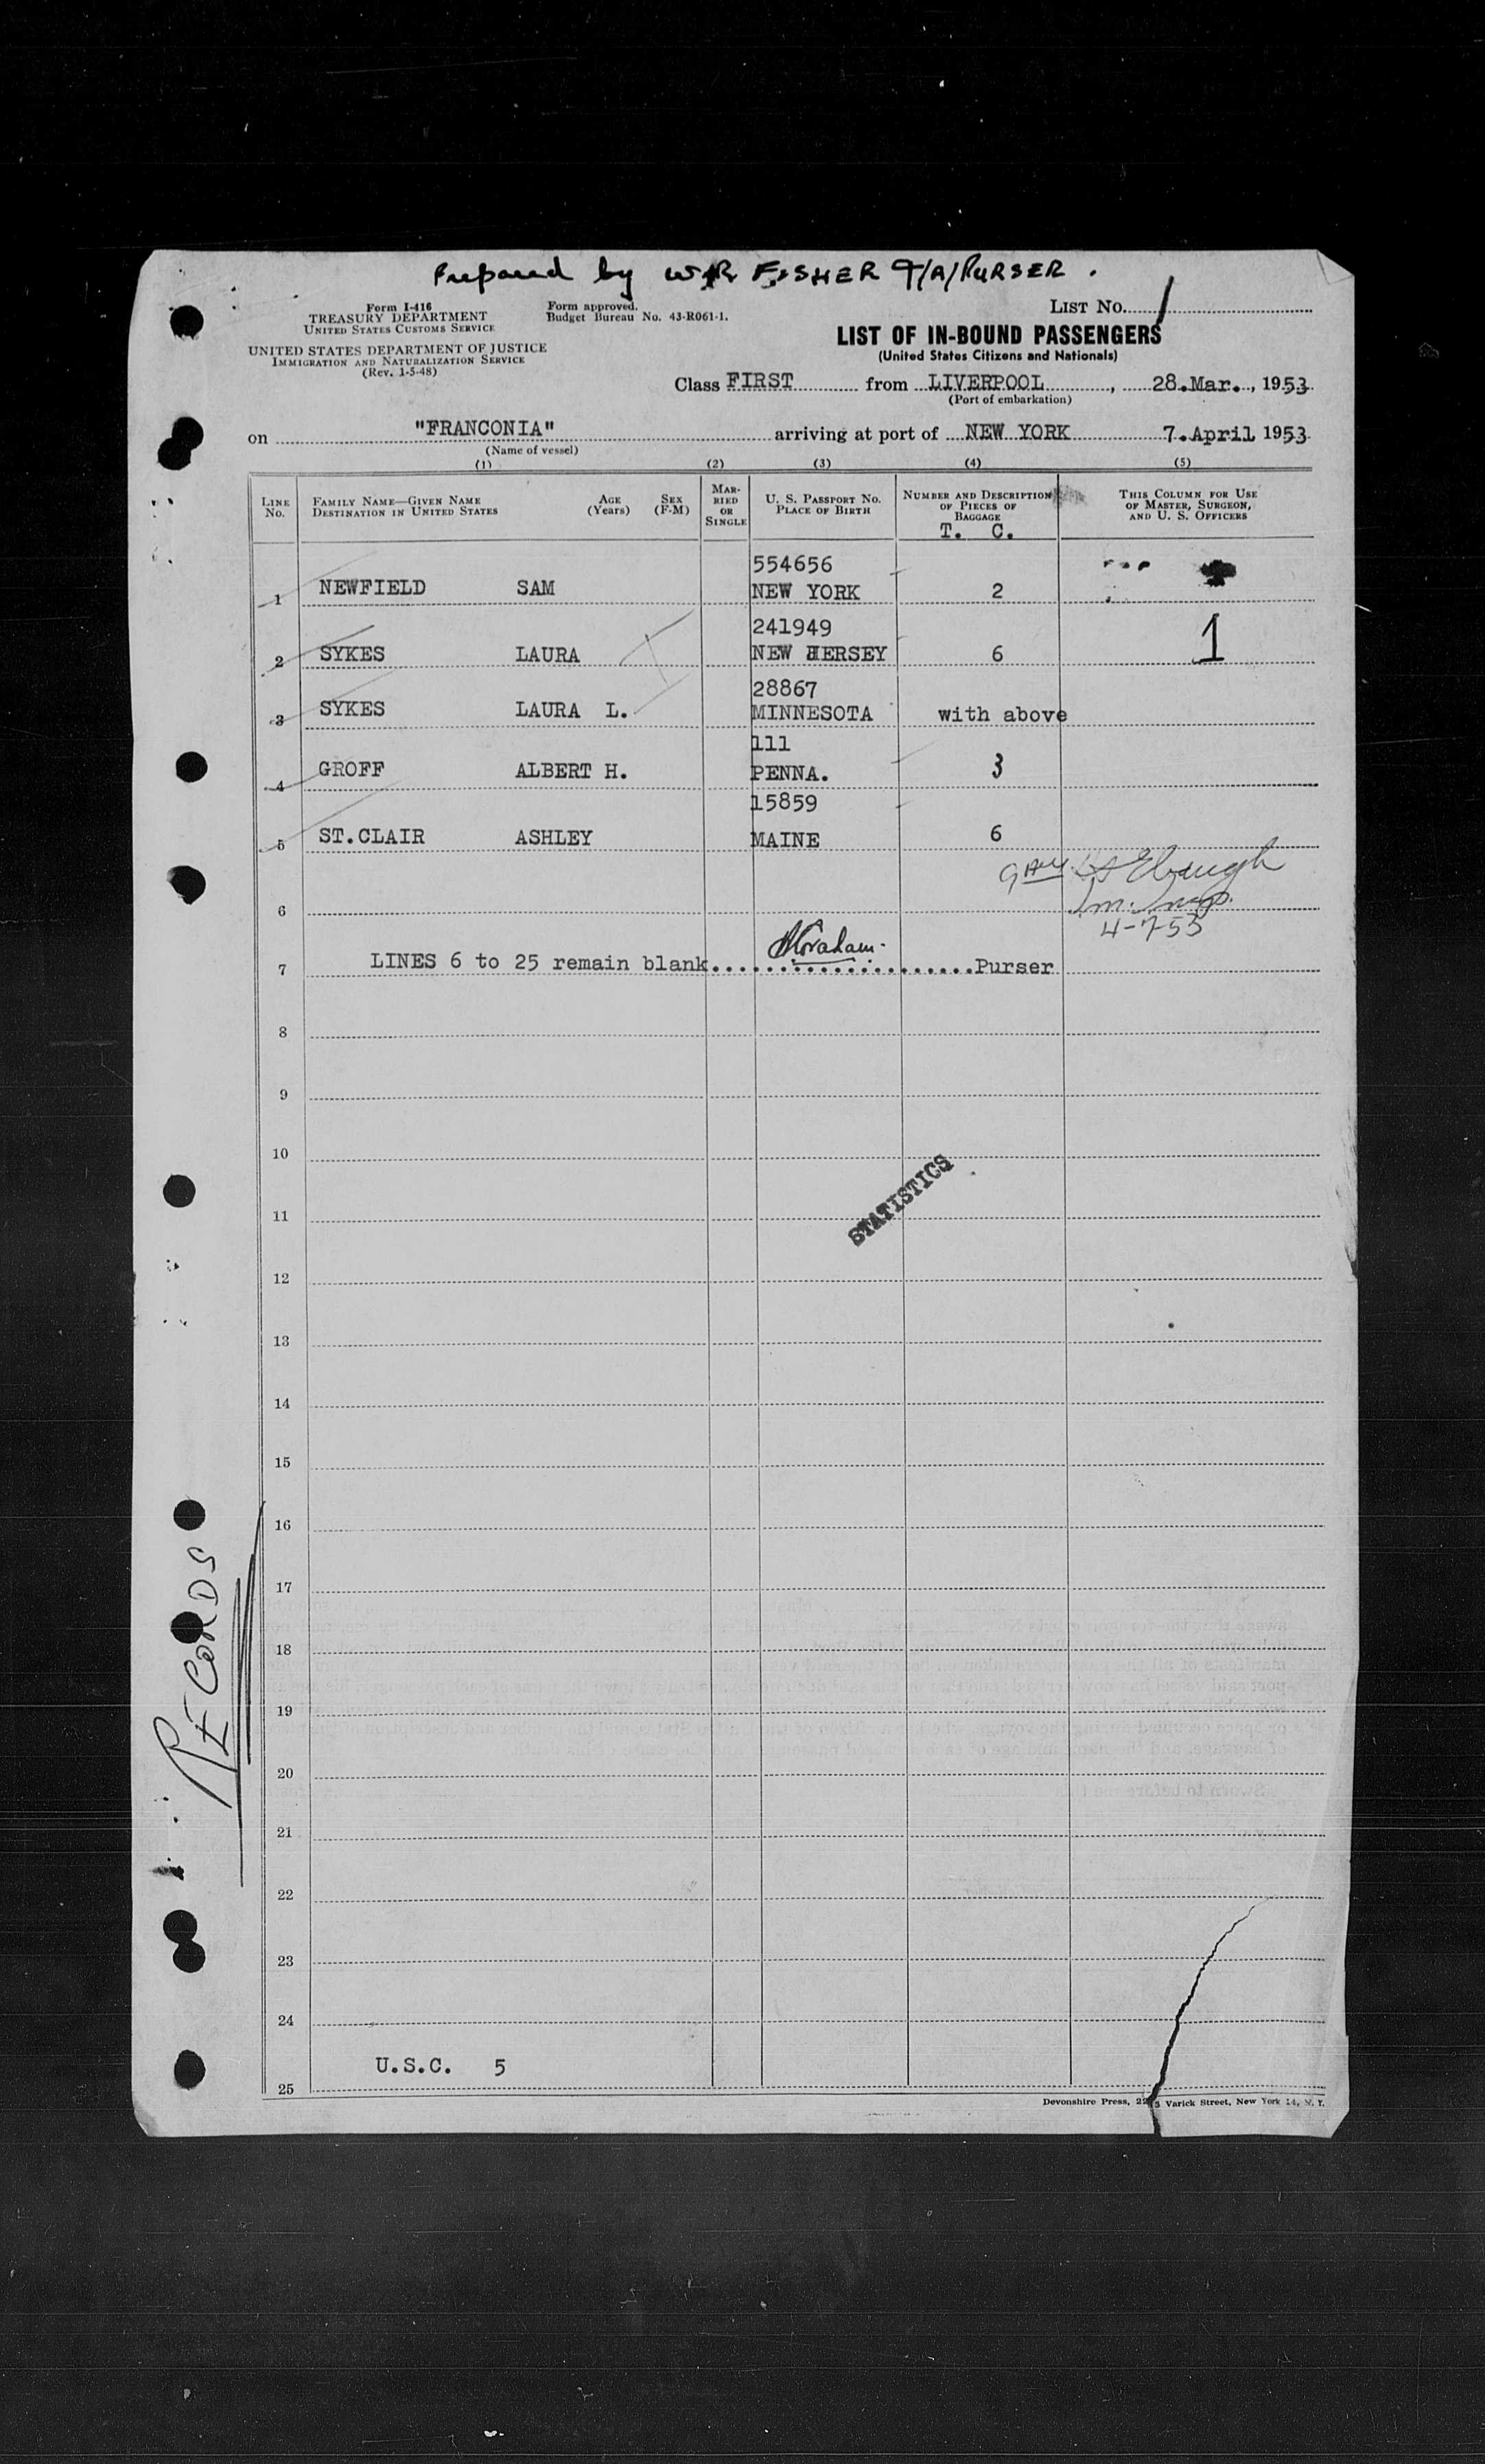 Prepared by W R FISHER T/A/PURSER.
Form I-416
TREASURY DEPARTMENT
UNITED STATES CUSTOMS SERVICE
Form approved.
Budget Bureau No. 43-R061-1.
LIST No. 1
UNITED STATES DEPARTMENT OF JUSTICE
IMMIGRATION AND NATURALIZATION SERVICE
(Rev. 1-5-48)
LIST OF IN-BOUND PASSENGERS
(United States Citizens and Nationals)
Class FIRST from LIVERPOOL, 28.Mar., 1953
(Port of embarkation)
on "FRANCONIA" arriving at port of NEW YORK 7.April 1953
(Name of vessel)
(1) (2) (3) (4) (5)
LINE No.
FAMILY NAME—GIVEN NAME
DESTINATION IN UNITED STATES
AGE (Years)
SEX (F-M)
MARRIED OR SINGLE
U. S. PASSPORT No.
PLACE OF BIRTH
NUMBER AND DESCRIPTION OF PIECES OF BAGGAGE
T. C.
THIS COLUMN FOR USE OF MASTER, SURGEON, AND U. S. OFFICERS
554656
1 NEWFIELD SAM NEW YORK 2
241949
2 SYKES LAURA NEW HERSEY 6 1
28867
3 SYKES LAURA L. MINNESOTA with above
111
4 GROFF ALBERT H. PENNA. 3
15859
5 ST.CLAIR ASHLEY MAINE 6
6
4-7-53
7 LINES 6 to 25 remain blank.....................Purser
8
9
10
STATISTICS
11
12
13
14
15
16
17
18
19
20
21
22
23
24
25 U.S.C. 5
RECORDS
Devonshire Press, 225 Varick Street, New York 14, N. Y.